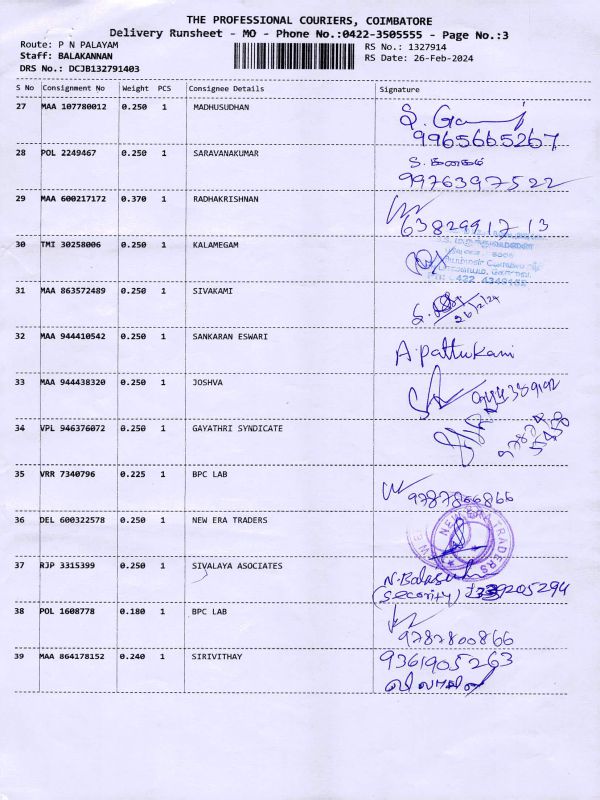 THE PROFESSIONAL COURIERS, COIMBATORE
Delivery Runsheet - MO - Phone No.:0422-3505555 - Page No.:3
Route: P N PALAYAM
RS No.: 1327914
Staff: BALAKANNAN
RS Date: 26-Feb-2024
DRS No.: DCJB132791403
S No Consignment No Weight PCS Consignee Details Signature
27 MAA 107780012 0.250 1 MADHUSUDHAN
9965665267
28 POL 2249467 0.250 1 SARAVANAKUMAR
9976397522
29 MAA 600217172 0.370 1 RADHAKRISHNAN
6382991713
30 TMI 30258006 0.250 1 KALAMEGAM
31 MAA 863572489 0.250 1 SIVAKAMI
26/2/24
32 MAA 944410542 0.250 1 SANKARAN ESWARI
A.pattukani
33 MAA 944438320 0.250 1 JOSHVA
34 VPL 946376072 0.250 1 GAYATHRI SYNDICATE
35 VRR 7340796 0.225 1 BPC LAB
9787866866
36 DEL 600322578 0.250 1 NEW ERA TRADERS
NEW ERA TRADERS
37 RJP 3315399 0.250 1 SIVALAYA ASOCIATES
(Security)
38 POL 1608778 0.180 1 BPC LAB
9787800866
39 MAA 864178152 0.240 1 SIRIVITHAY
9361905263